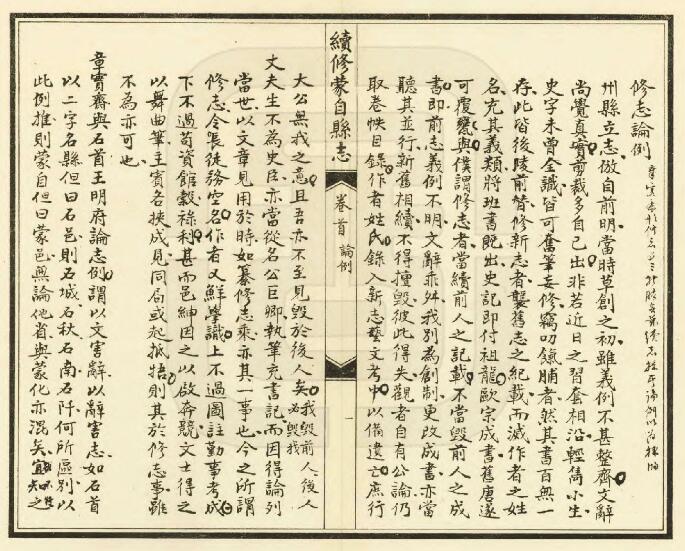 修志論例
州縣立志倣自前明當時草創之初雖義例不甚整齊文辭
尚覺真實剪裁多自己出非若近日之習套相沿輕雋小生
史字未曾全識皆可奮筆妄修竊叨餼脯者然其書百無一
存此皆後陵前替修新志者襲舊志之紀載而滅作者之姓
名充其義類將班書既出史記即付祖龍歐宗成書舊唐遂
可覆甕與僕謂修志者當續前人之記載不當毀前人之成
書即前志義例不明文辭乖舛我別為創制更改成書亦當
聽其並行新舊相續不得擅毀彼此得失觀者自有公論仍
取卷帙目錄作者姓氏錄入新志藝文考中以備遺亡庶行
續修蒙自縣志
卷首 論例
一
大公無我之意且吾亦不至見毀於後人矣我毀前人後人必毀我
丈夫生不為史臣亦當從名公巨卿執筆充書記而因得論列
當世以文章見用於時如纂修志乘亦其一事也今之所謂
修志令長徒務空名作者又鮮學識上不過圖註勤事考成
下不過苟資館穀祿利甚而邑紳因之以啟奔競文士得之
以舞曲筆主賓各挾成見同局或起抵牾則其於修志事雖
不為亦可也
章實齋與石首王明府論志例謂以文害辭以辭害志如石首
以二字名縣但曰石邑則石城石秋石南石阡何所區別以
此例推則蒙自但曰蒙邑無論他省與蒙化亦混矣